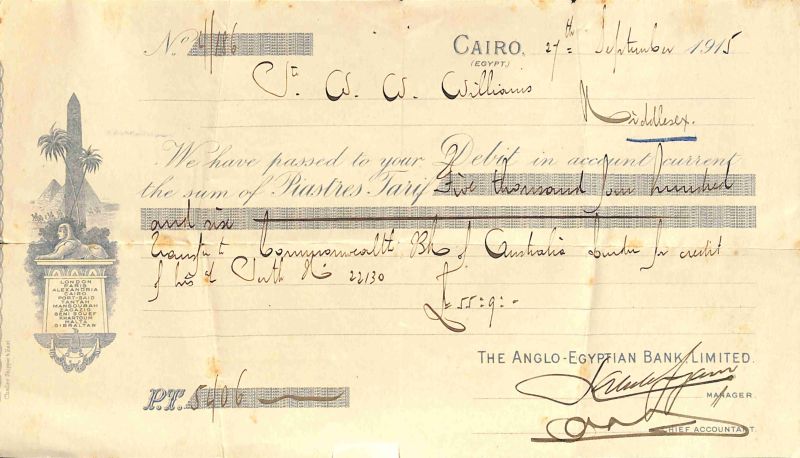 No 4/186
CAIRO, 27th September 1915
(EGYPT.)
W. W. Williams
Middlesex.
We have passed to your Debit in account current
the sum of Piastres Tarif Five thousand four hundred
and six
Transfer to Commonwealth Bk of Australia London for credit
of his a/c Perth No 22130
£ 55:9:-
LONDON
PARIS
ALEXANDRIA
CAIRO
PORT-SAID
TANTAH
MANSOURAH
ZAGAZIG
BENI SOUEF
KHARTOUM
MALTA
GIBRALTAR
THE ANGLO-EGYPTIAN BANK, LIMITED.
MANAGER.
P.T. 5406
CHIEF ACCOUNTANT.